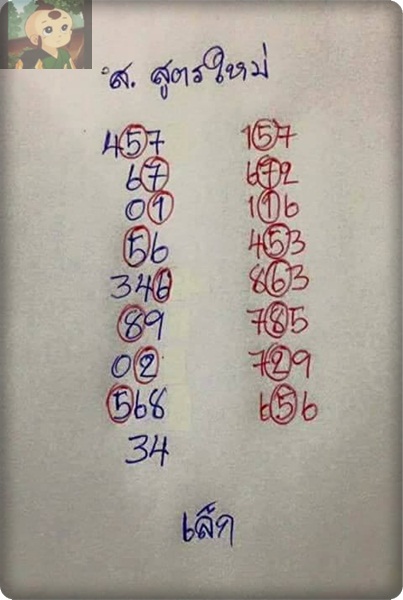 ส. สูตรใหม่
457 157
67 672
01 116
56 453
346 863
89 785
02 729
568 656
34